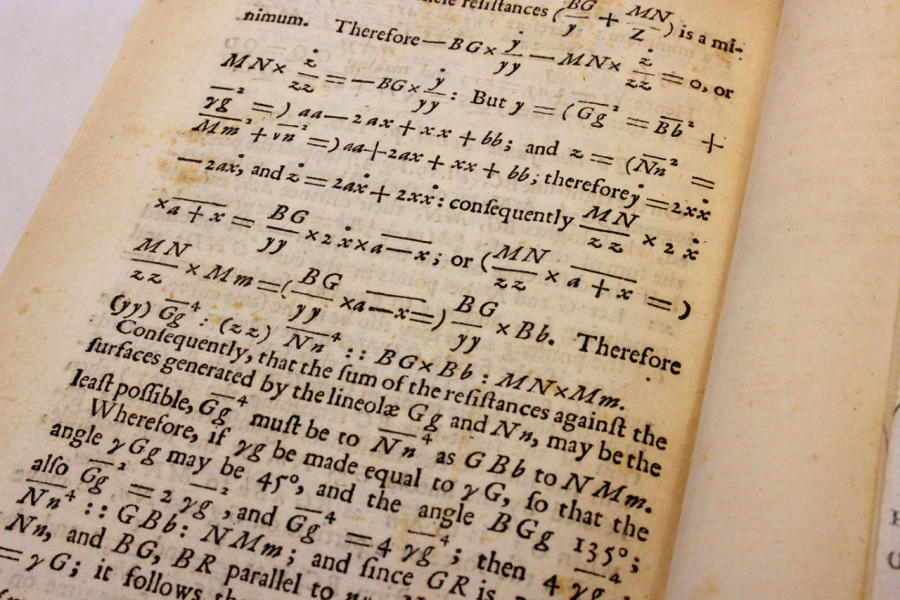 resiſtances (BG/y + MN/Z) is a mi-
nimum. Therefore — BG × ẏ/yy — MN × ż/zz = 0, or
MN × ż/zz = — BG × ẏ/yy : But y = (G̅g̅² = B̅b̅² +
γ̅g̅² =) aa — 2ax + xx + bb; and z = (N̅n̅² =
M̅m̅² + ν̅n̅² =) aa + 2ax + xx + bb; therefore ẏ = 2xẋ
— 2aẋ, and ż = 2aẋ + 2xẋ : conſequently MN/zz × 2ẋ
× a̅ ̅+̅ ̅x̅ = BG/yy × 2ẋ × a̅ ̅—̅ ̅x̅; or (MN/zz × a̅ ̅+̅ ̅x̅ =)
MN/zz × Mm = (BG/yy × a̅ ̅—̅ ̅x̅ =) BG/yy × Bb. Therefore
(yy) G̅g̅⁴ : (zz) N̅n̅⁴ :: BG × Bb : MN × Mm.
Conſequently, that the ſum of the reſiſtances againſt the
ſurfaces generated by the lineolæ Gg and Nn, may be the
leaſt poſſible, G̅g̅⁴ muſt be to N̅n̅⁴ as GBb to NMm.
Wherefore, if γg be made equal to γG, ſo that the
angle γGg may be 45°, and the angle BGg 135°;
alſo G̅g̅² = 2 γ̅g̅², and G̅g̅⁴ = 4 γ̅g̅⁴; then 4 γ̅g̅⁴ :
N̅n̅⁴ :: GBb : NMm; and ſince GR is
Nn, and BG, BR parallel to
= γG; it follows